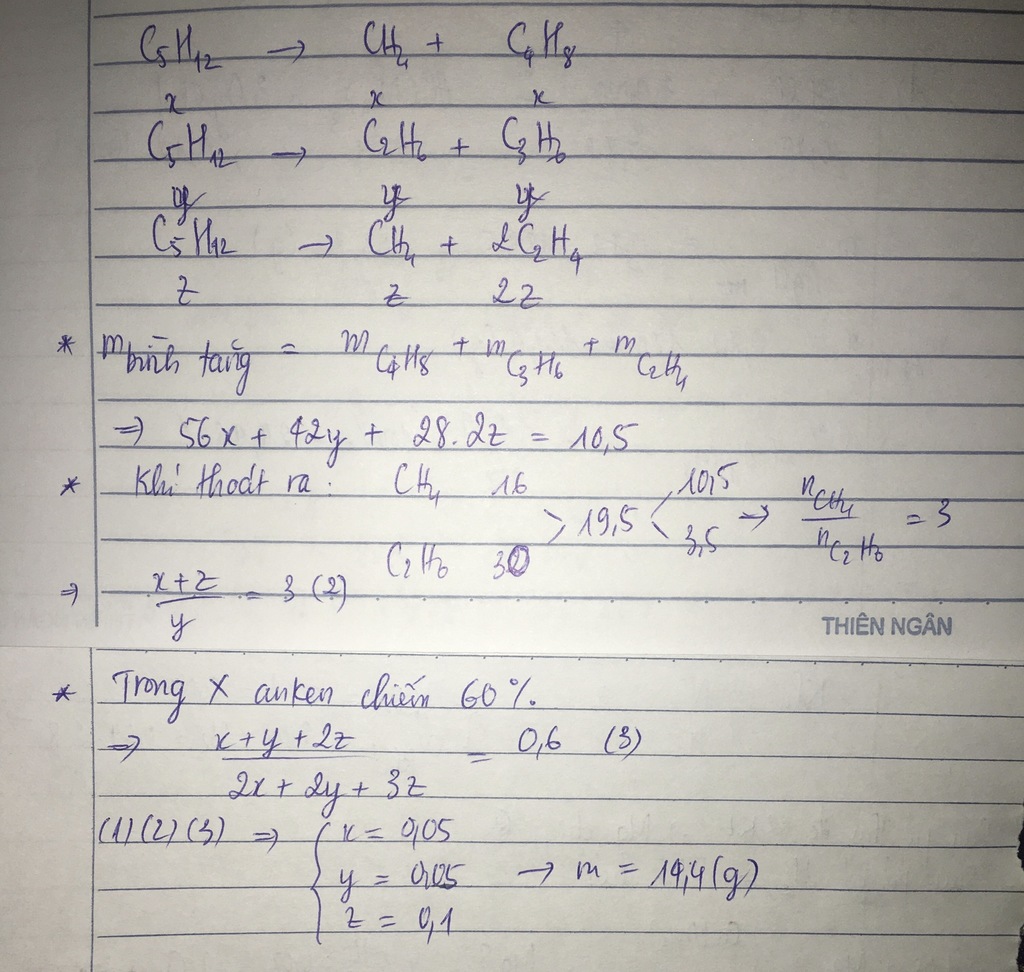 C₅H₁₂ → CH₄ + C₄H₈
x x x
C₅H₁₂ → C₂H₆ + C₃H₆
y y y
C₅H₁₂ → CH₄ + 2C₂H₄
z z 2z
* m bình tăng = m C₄H₈ + m C₃H₆ + m C₂H₄
⇒ 56x + 42y + 28.2z = 10,5
* Khí thoát ra: CH₄ 16 10,5
> 19,5 < → nCH₄ / nC₂H₆ = 3
C₂H₆ 30 3,5
⇒ (x+z) / y = 3 (2)
THIÊN NGÂN
* Trong X anken chiếm 60%.
⇒ (x+y+2z) / (2x+2y+3z) = 0,6 (3)
(1)(2)(3) ⇒ { x = 0,05
y = 0,05 → m = 14,4(g)
z = 0,1